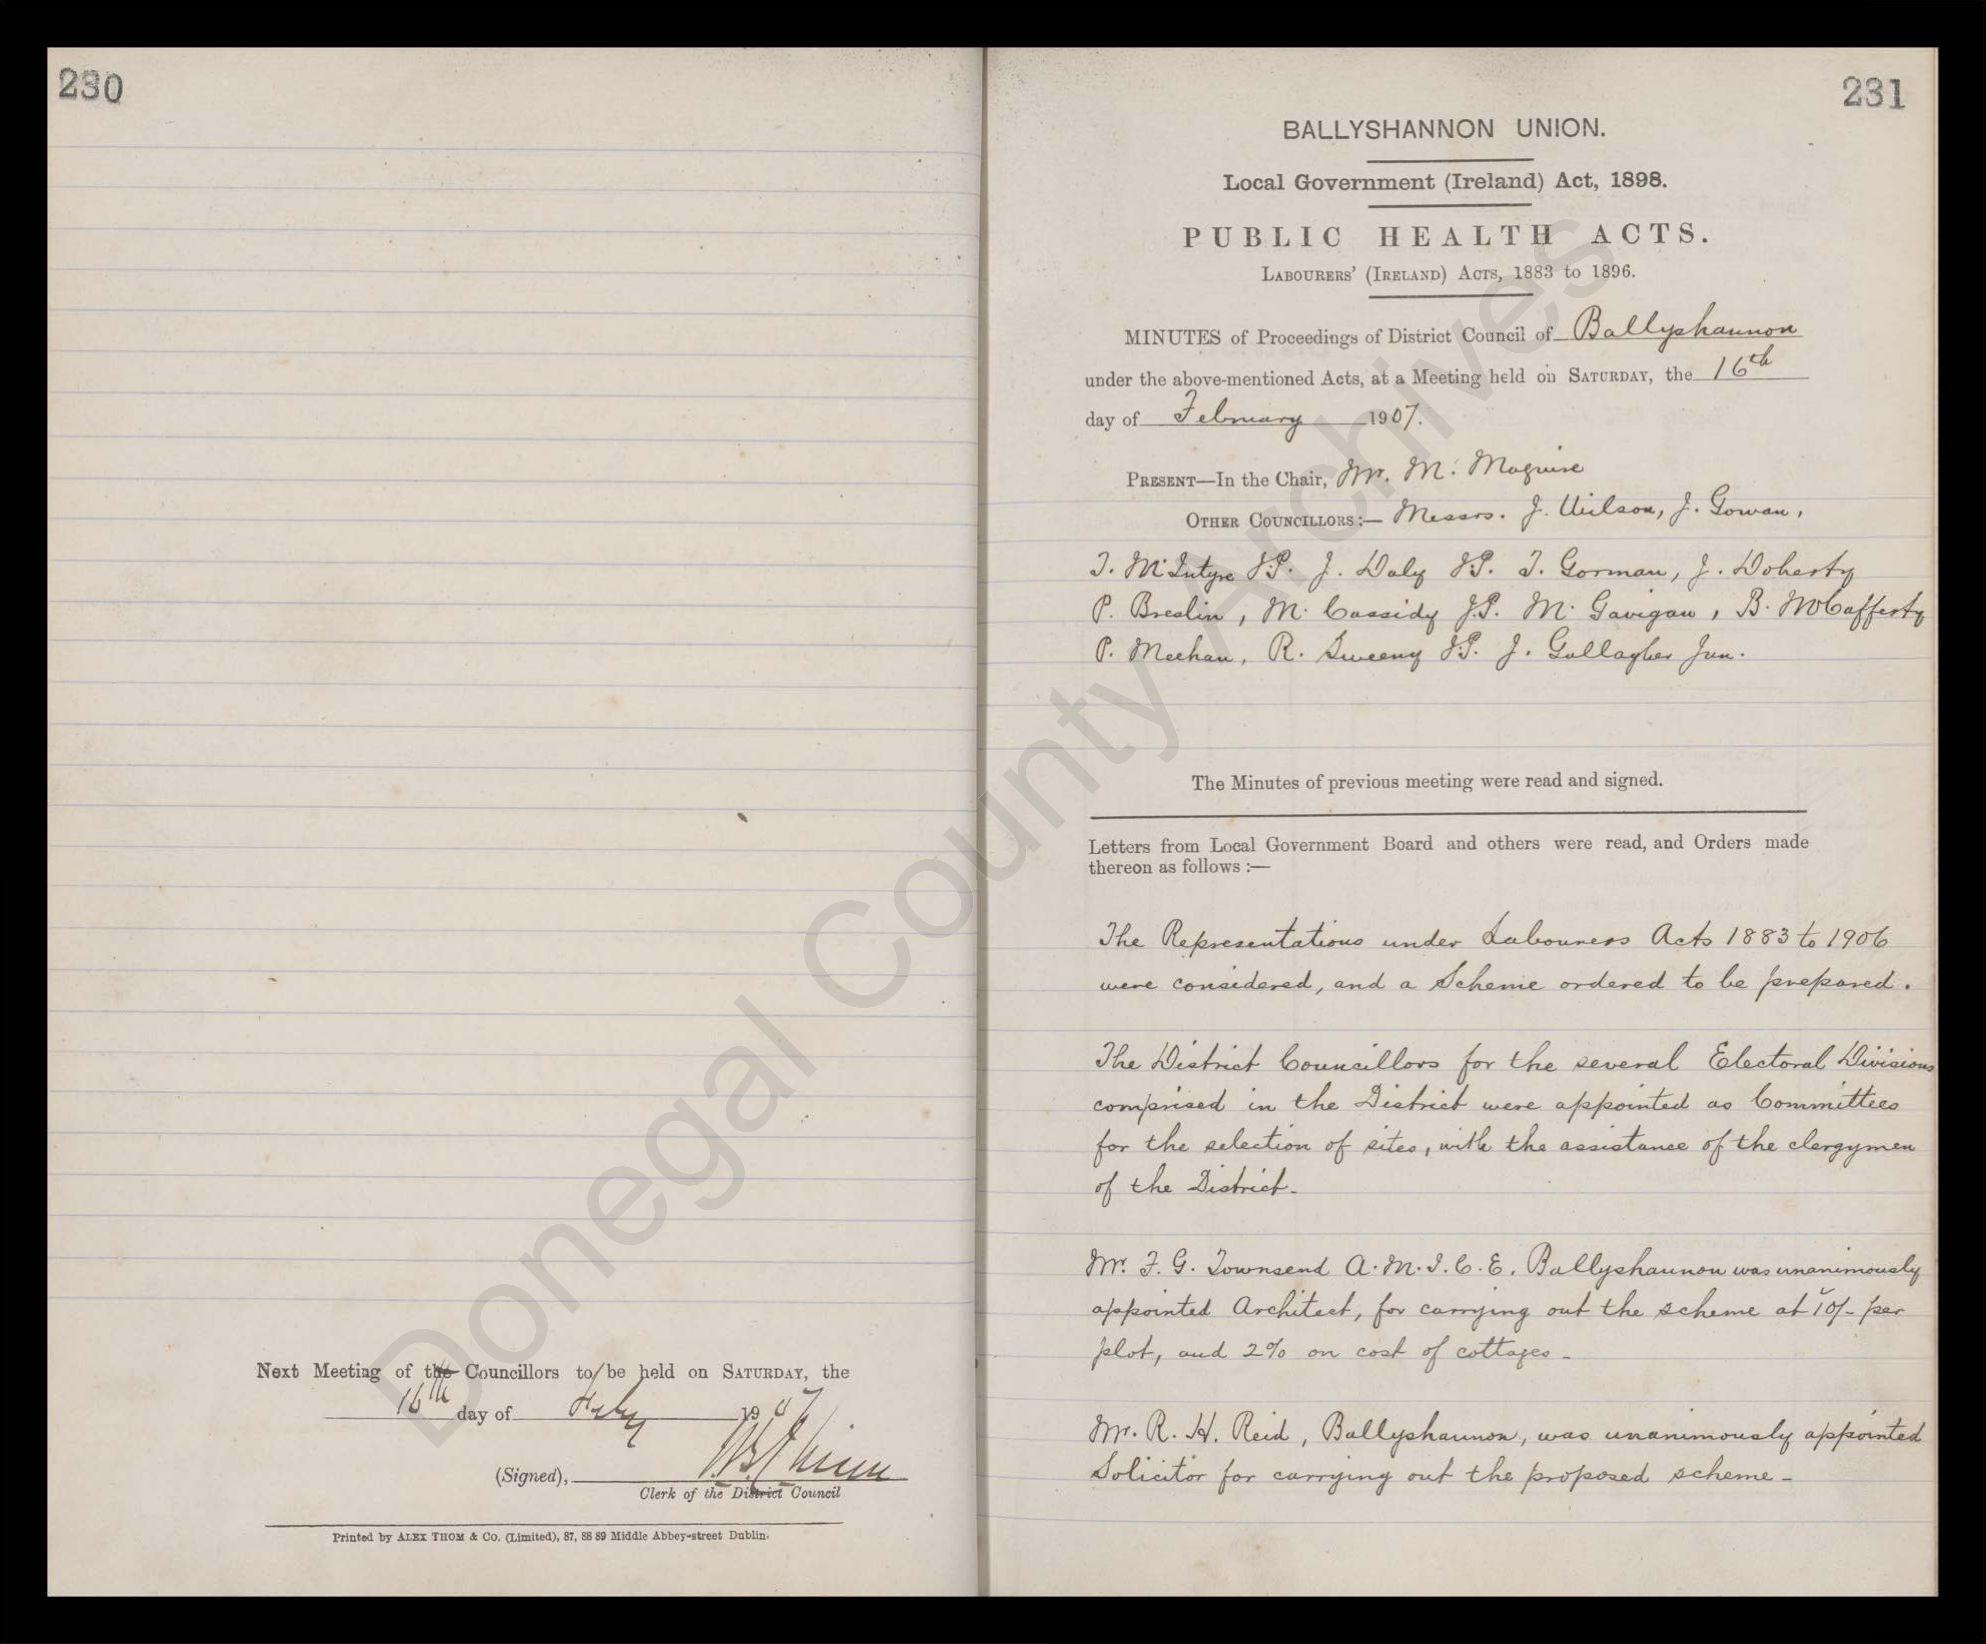 230
Next Meeting of the Councillors to be held on SATURDAY, the
16th day of Feby 1907
(Signed),
Clerk of the District Council
Printed by ALEX THOM & Co. (Limited), 87, 88 89 Middle Abbey-street Dublin.
231
BALLYSHANNON UNION.
Local Government (Ireland) Act, 1898.
PUBLIC HEALTH ACTS.
LABOURERS' (IRELAND) ACTS, 1883 to 1896.
MINUTES of Proceedings of District Council of Ballyshannon
under the above-mentioned Acts, at a Meeting held on SATURDAY, the 16th
day of February 1907.
PRESENT—In the Chair, Mr. M. Maguire
OTHER COUNCILLORS:— Messrs. J. Wilson, J. Gowan,
T. McIntyre J.P. J. Daly J.P. T. Gorman, J. Doherty
P. Breslin, M. Cassidy J.P. M. Gavigan, B. McCafferty
P. Meehan, R. Sweeny J.P. J. Gallagher Jun.
The Minutes of previous meeting were read and signed.
Letters from Local Government Board and others were read, and Orders made
thereon as follows :—
The Representations under Labourers Acts 1883 to 1906
were considered, and a Scheme ordered to be prepared.
The District Councillors for the several Electoral Divisions
comprised in the District were appointed as Committees
for the selection of sites, with the assistance of the clergymen
of the District.
Mr. F. G. Townsend A.M.I.C.E. Ballyshannon was unanimously
appointed Architect, for carrying out the scheme at 10/- per
plot, and 2% on cost of cottages -
Mr. R. H. Reid, Ballyshannon, was unanimously appointed
Solicitor for carrying out the proposed scheme -
Donegal County Archives